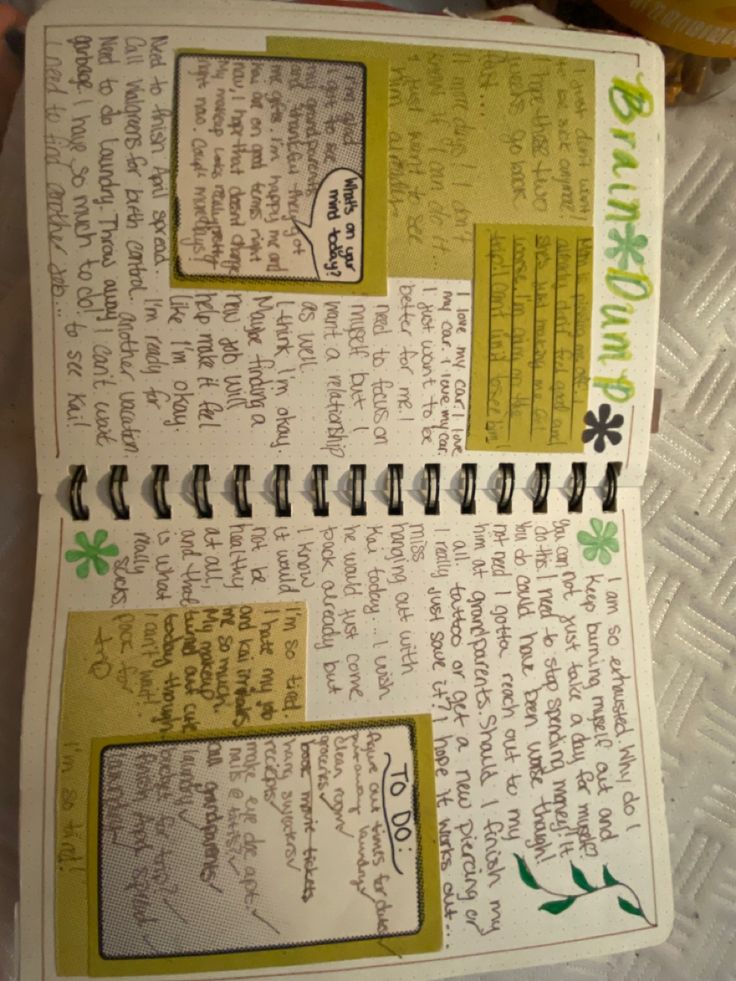 Brain Dump
I just don't want
to be sick anymore!
I hope these two
weeks go
fast...
11 more days! I don't
know if I can do it...
I just want to see
him already
Mom is pissing me off. I
already don't feel good and
she's just making me feel
worse. I'm going on this
trip! Can't wait to see him!
What's on your
mind today?
I'm glad
I got to see
my grandparents
and thankful they got
me gifts. I'm happy me and
are on good terms right
now, I hope that doesn't change
My makeup looks really pretty
right now. Couple more days!
I love my car. I love
my car. I love my car.
I just want to be
better for me. I
need to focus on
myself but I
want a relationship
as well.
I think I'm okay.
Maybe finding a
new job will
help make it feel
like I'm okay.
I'm ready for
another vacation.
I can't wait
to see Kai!
Need to finish April spread.
Call Walgreens for birth control.
Need to do laundry. Throw away
garbage. I have so much to do!
I need to find another job...
I am so exhausted. Why do I
keep burning myself out and
you can not just take a day for myself?
do this. I need to stop spending money! It
You do could have been worse though!
not need I gotta reach out to my
him at grandparents. Should I finish my
all. tattoo or get a new piercing or
I really just save it? I hope it works out...
miss
hanging out with
Kai today... I wish
he would just come
back already but
I know
it would
not be
healthy
at all,
and that
is what
really
sucks.
I'm so tired.
I hate my job
and Kai
me so much.
My makeup
turned out cute
today though
I can't wait!
pack for
trip
I'm so tired!
TO DO:
figure out times for
throw away laundry
clean room
groceries
book movie tickets
hang sweaters
receipts
make eye doc apt.
nails @
call grandparents
laundry
budget for trip?
finish April spread